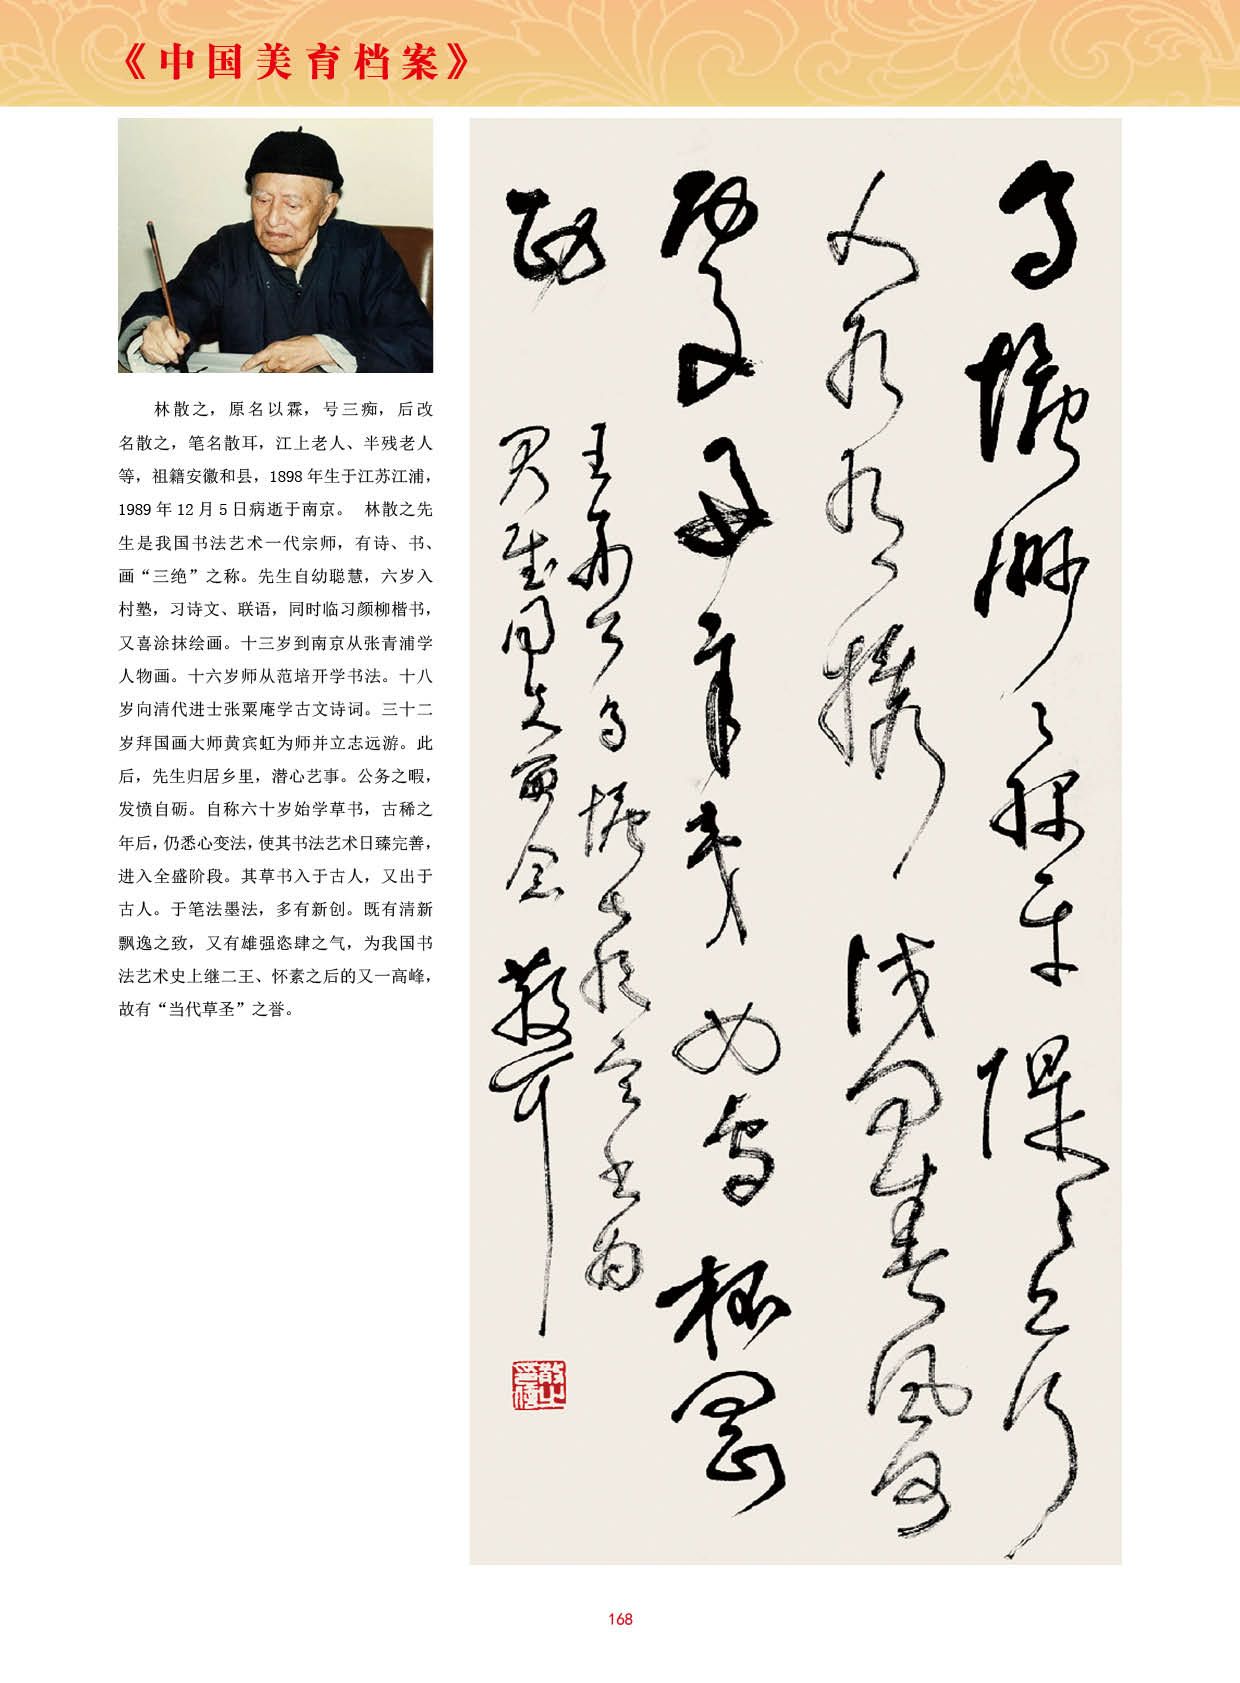 《中国美育档案》
林散之，原名以霖，号三痴，后改
名散之，笔名散耳，江上老人、半残老人
等，祖籍安徽和县，1898年生于江苏江浦，
1989年12月5日病逝于南京。 林散之先
生是我国书法艺术一代宗师，有诗、书、
画“三绝”之称。先生自幼聪慧，六岁入
村塾，习诗文、联语，同时临习颜柳楷书，
又喜涂抹绘画。十三岁到南京从张青浦学
人物画。十六岁师从范培开学书法。十八
岁向清代进士张粟庵学古文诗词。三十二
岁拜国画大师黄宾虹为师并立志远游。此
后，先生归居乡里，潜心艺事。公务之暇，
发愤自砺。自称六十岁始学草书，古稀之
年后，仍悉心变法，使其书法艺术日臻完善，
进入全盛阶段。其草书入于古人，又出于
古人。于笔法墨法，多有新创。既有清新
飘逸之致，又有雄强恣肆之气，为我国书
法艺术史上继二王、怀素之后的又一高峰，
故有“当代草圣”之誉。
乌塘渺渺绿平堤堤上行
人各有携试问春风何
处好辛夷如雪柘冈
西
王荆公乌塘七绝书为
君同志留念 散耳
168